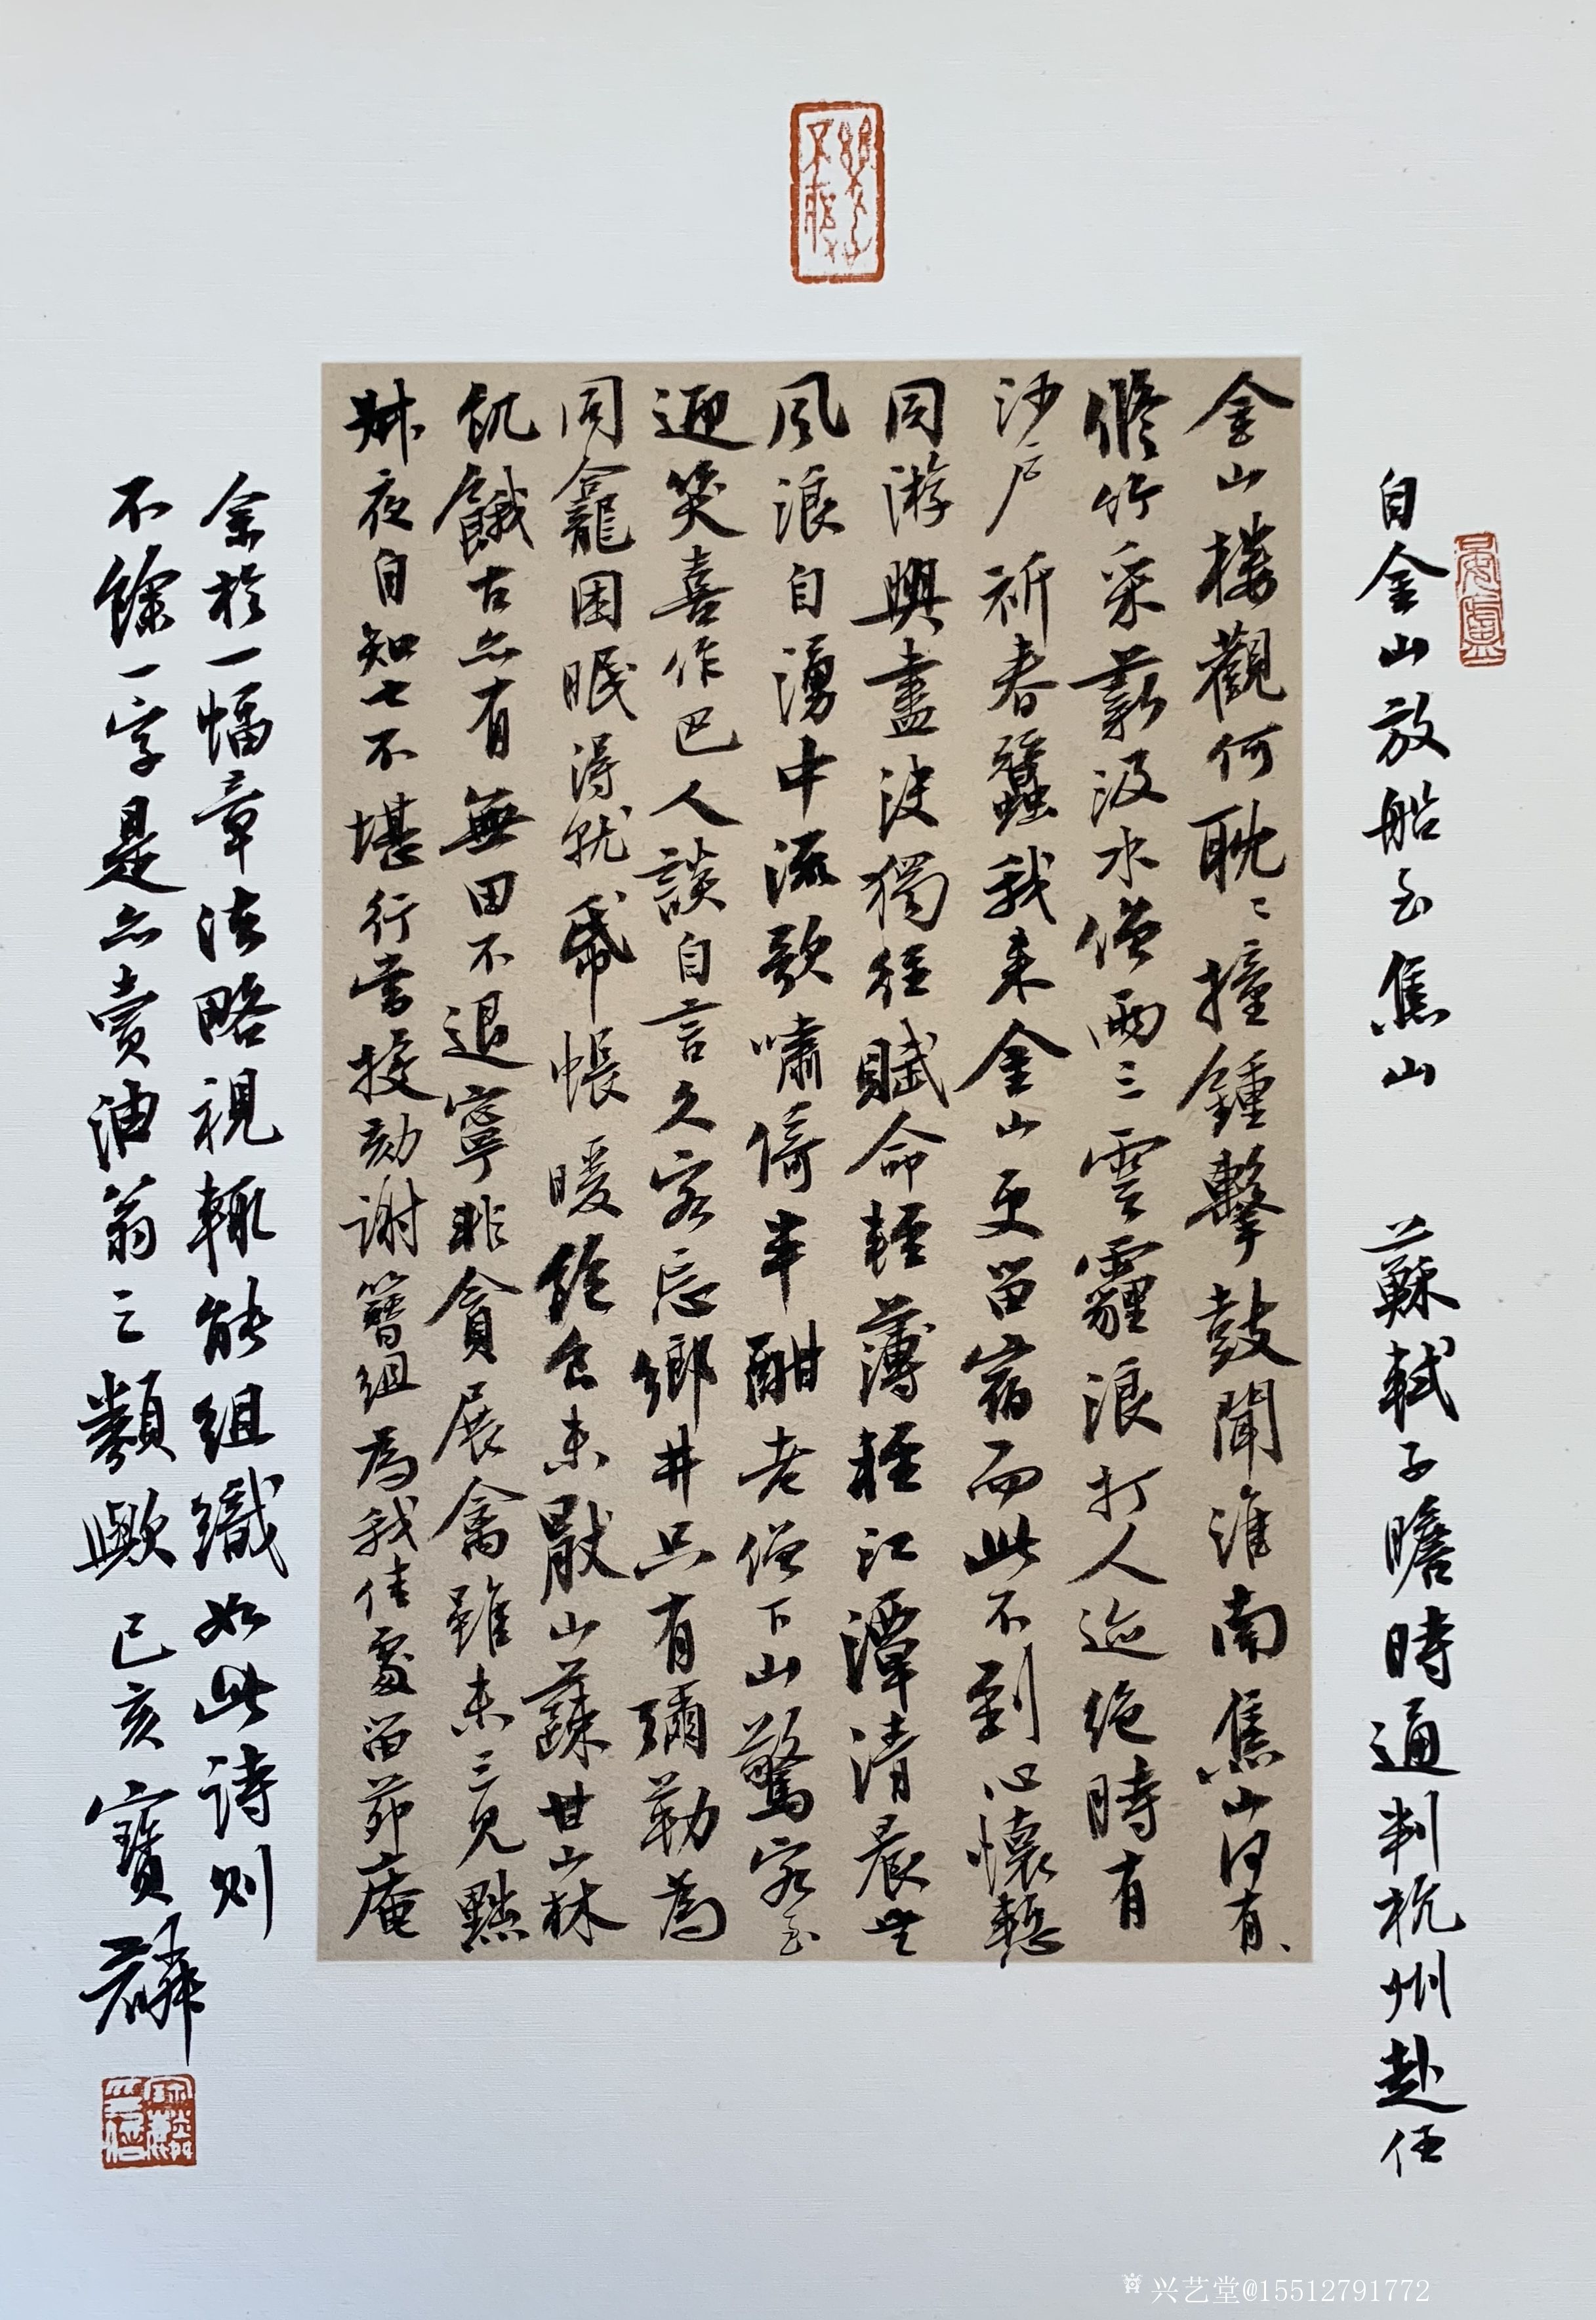 自金山放船至焦山 蘇軾子瞻時通判杭州赴任
金山樓觀何耽〻撞鍾擊鼓聞淮南焦山何有〻
脩竹采薪汲水僧兩三雲霾浪打人迹絕時有
沙戶祈春蠶我来金山更留宿而此不到心懷慙
同游興盡決獨往賦命輕薄輕江潭清晨無
風浪自湧中流歌嘯倚半酣老僧下山驚客至
迎笑喜作巴人談自言久客忘鄉井只有彌勒為
同龕困眠得就帋帳暖飽食未厭山蔬甘山林
飢餓古亦有無田不退寧非貪展禽雖未三見黜
叔夜自知七不堪行當投劾謝簪組為我佳處留茆庵
余於一幅章法略視輒能組織如此詩則
不餘一字是亦賣油翁之類歟 己亥 寶麟
兴艺堂@15512791772